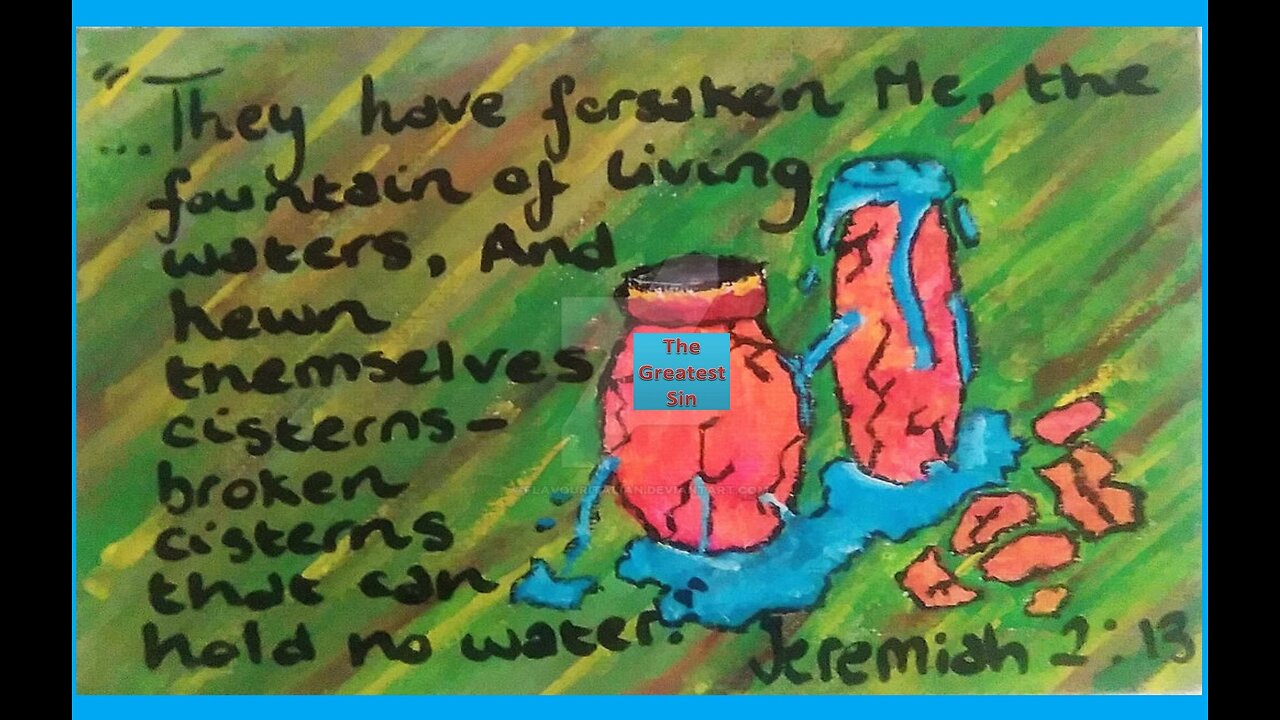 "...They have forsaken Me, the
fountain of living
waters, And
hewn
themselves
cisterns-
broken
cisterns
that can
hold no water."
Jeremiah 2:13
The
Greatest
Sin
FLAVOURITALIAN.DEVIANTART.COM